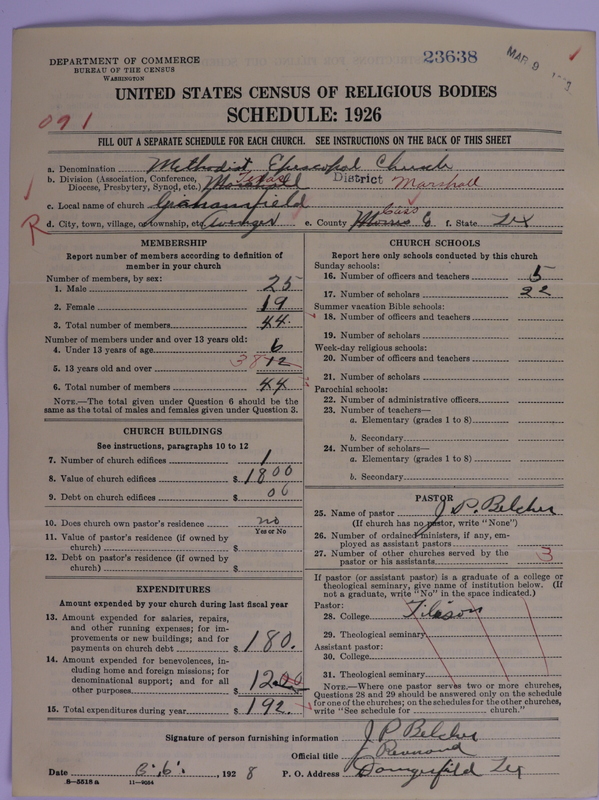 23638
MAR 9
DEPARTMENT OF COMMERCE
BUREAU OF THE CENSUS
WASHINGTON
UNITED STATES CENSUS OF RELIGIOUS BODIES
SCHEDULE: 1926
091
FILL OUT A SEPARATE SCHEDULE FOR EACH CHURCH. SEE INSTRUCTIONS ON THE BACK OF THIS SHEET
a. Denomination Methodist Episcopal Church
b. Division (Association, Conference, Diocese, Presbytery, Synod, etc.) Marshall Texas District Marshall
c. Local name of church Grahamfield
R d. City, town, village, or township, etc. Avenger e. County Morris Cass Co f. State Tex
MEMBERSHIP
Report number of members according to definition of member in your church
Number of members, by sex:
1. Male 25
2. Female 19
3. Total number of members 44.
Number of members under and over 13 years old:
4. Under 13 years of age 6
5. 13 years old and over 38 12
6. Total number of members 44
NOTE.—The total given under Question 6 should be the same as the total of males and females given under Question 3.
CHURCH BUILDINGS
See instructions, paragraphs 10 to 12
7. Number of church edifices 1
8. Value of church edifices $ 1800
9. Debt on church edifices $ 00
10. Does church own pastor's residence no
Yes or No
11. Value of pastor's residence (if owned by church) $
12. Debt on pastor's residence (if owned by church) $
EXPENDITURES
Amount expended by your church during last fiscal year
13. Amount expended for salaries, repairs, and other running expenses; for improvements or new buildings; and for payments on church debt $ 180.
14. Amount expended for benevolences, including home and foreign missions; for denominational support; and for all other purposes $ 12.00
15. Total expenditures during year $ 192.
CHURCH SCHOOLS
Report here only schools conducted by this church
Sunday schools:
16. Number of officers and teachers 5
17. Number of scholars 22
Summer vacation Bible schools:
18. Number of officers and teachers
19. Number of scholars
Week-day religious schools:
20. Number of officers and teachers
21. Number of scholars
Parochial schools:
22. Number of administrative officers
23. Number of teachers—
a. Elementary (grades 1 to 8)
b. Secondary
24. Number of scholars—
a. Elementary (grades 1 to 8)
b. Secondary
PASTOR
25. Name of pastor J. P. Belcher
(If church has no pastor, write "None")
26. Number of ordained ministers, if any, employed as assistant pastors
27. Number of other churches served by the pastor or his assistants 3
If pastor (or assistant pastor) is a graduate of a college or theological seminary, give name of institution below. (If not a graduate, write "No" in the space indicated.)
Pastor:
28. College
29. Theological seminary
Assistant pastor:
30. College
31. Theological seminary
NOTE.—Where one pastor serves two or more churches, Questions 28 and 29 should be answered only on the schedule for one of the churches; on the schedules for the other churches, write "See schedule for church."
Signature of person furnishing information J P Belcher
Official title Reverend
Date 3.6. 1928 P. O. Address Daingerfield Tex
8-5518 a 11-9064